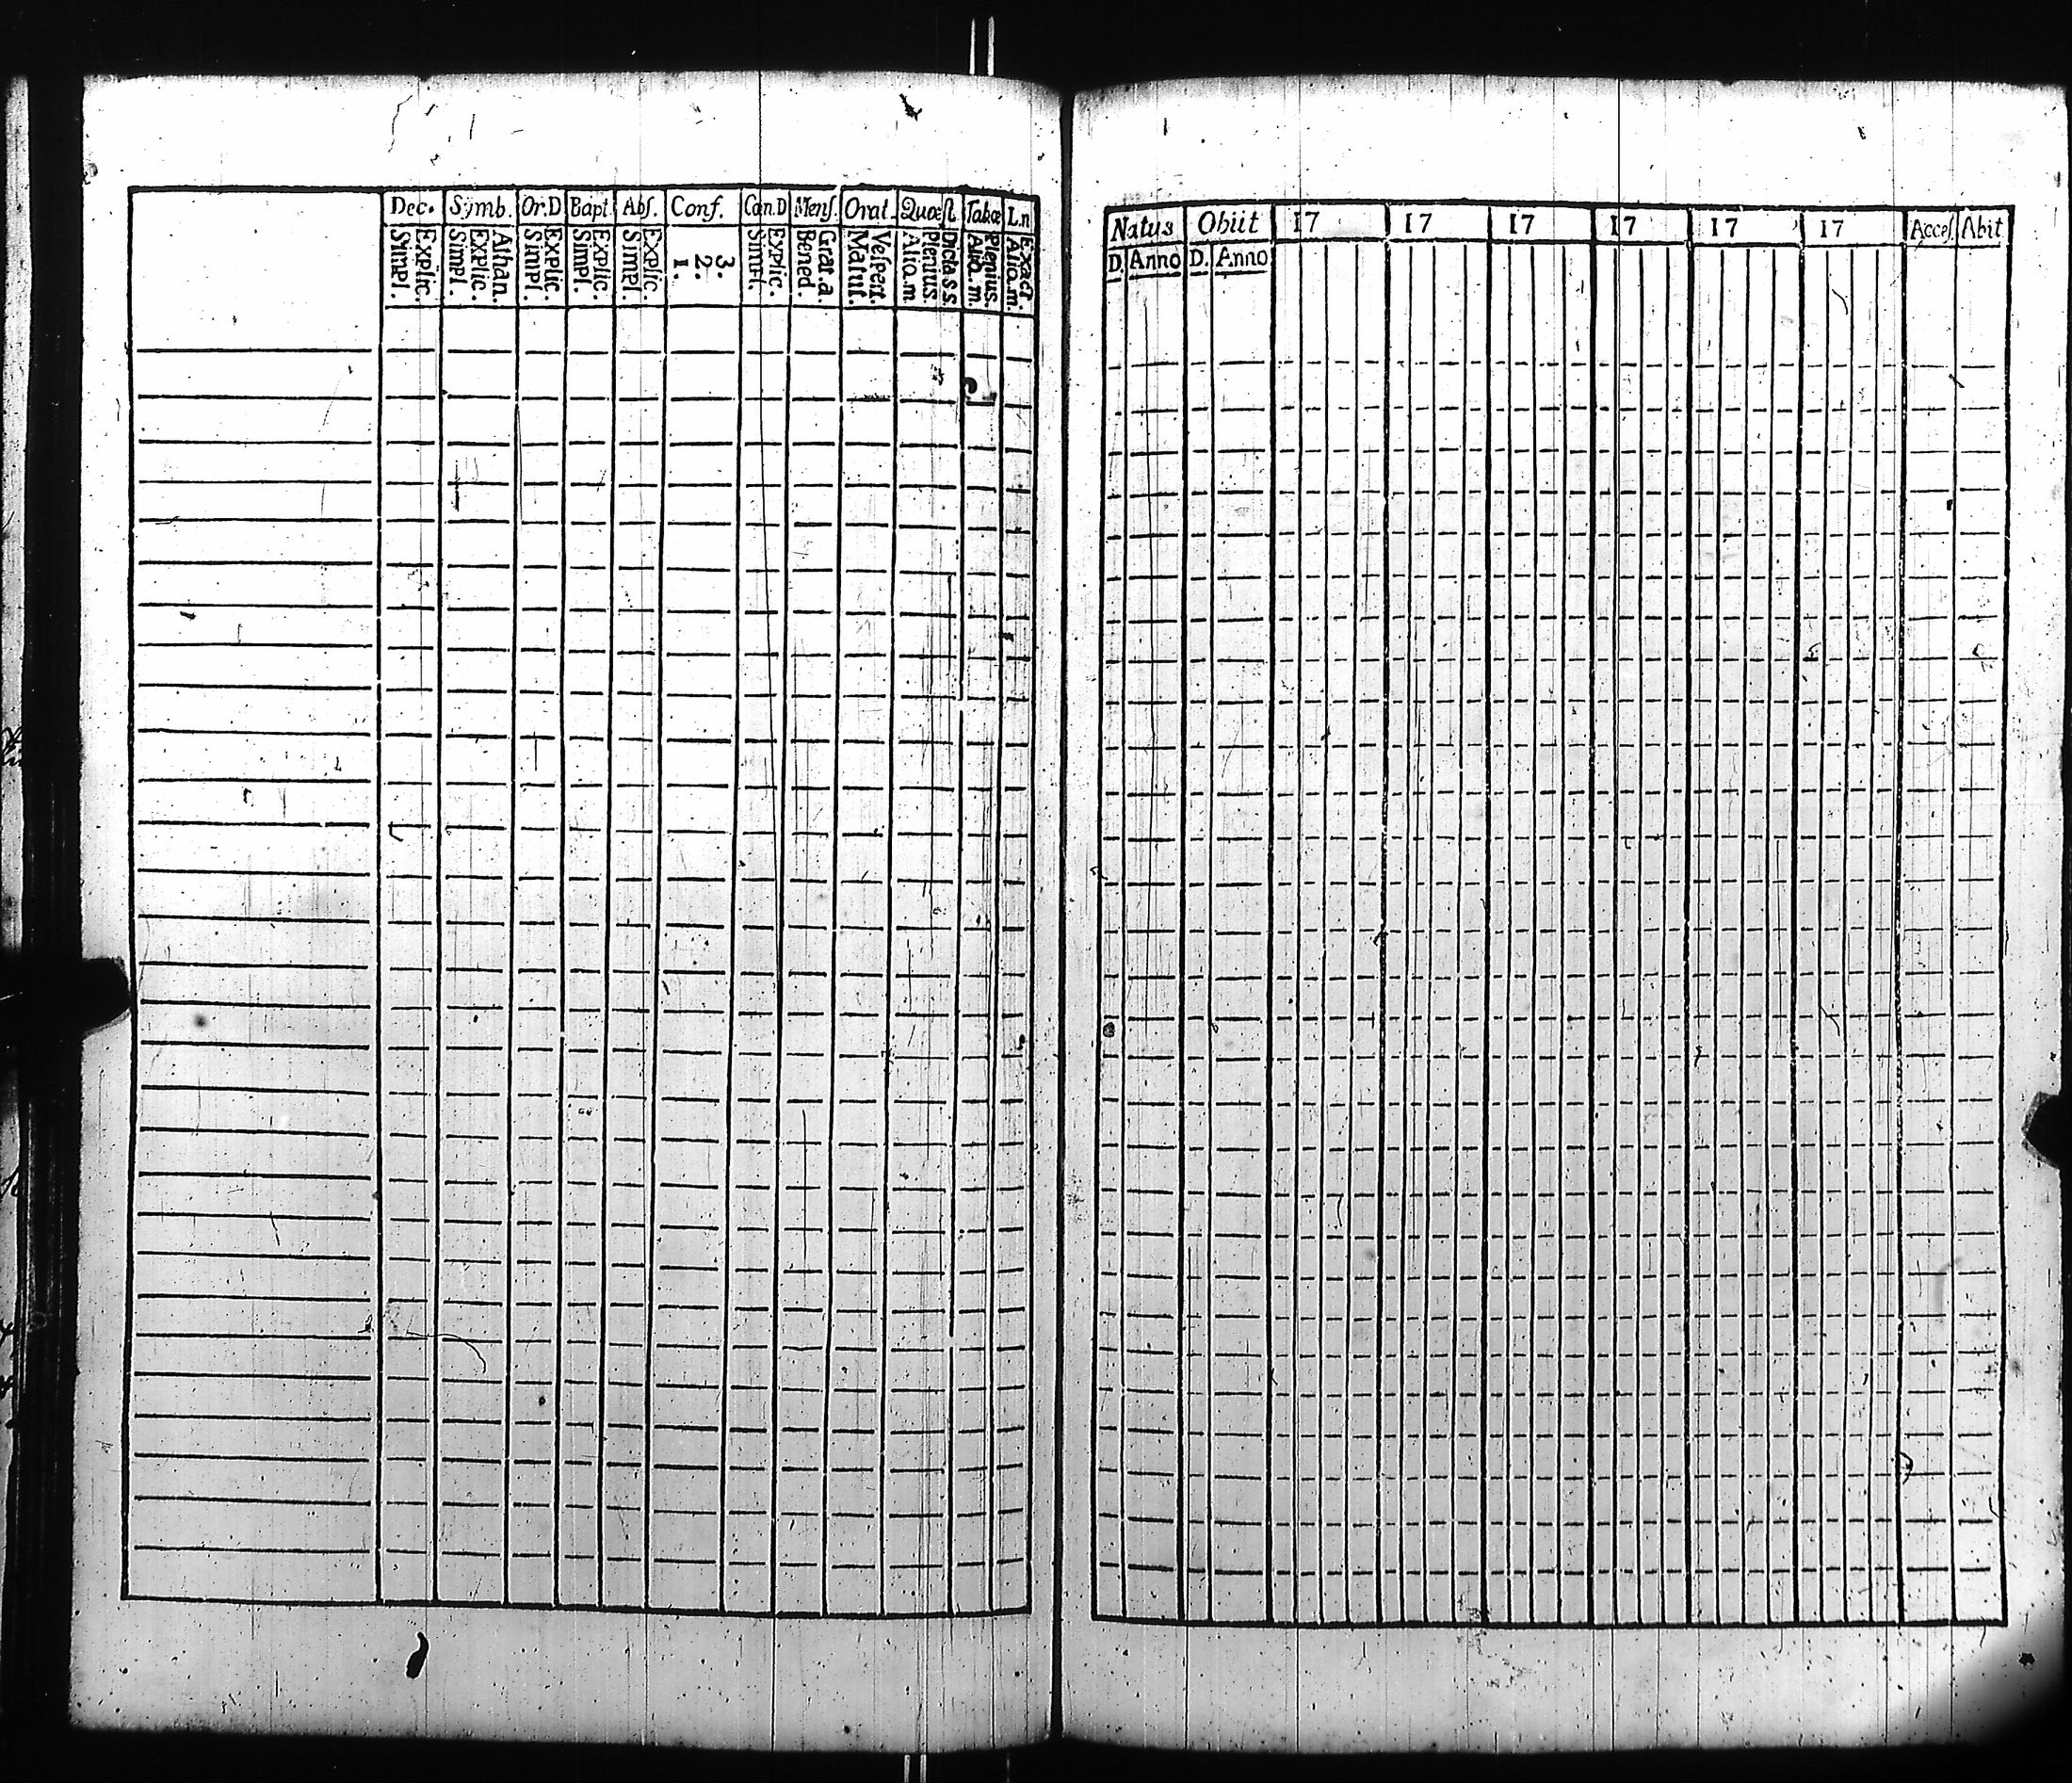 Dec. Symb. Or.D Bapt. Abſ. Conf. Can.D Menſ. Orat. Quæſt Tabæ L.n
Explic. Simpl.
Athan. Explic. Simpl.
Explic. Simpl.
Explic. Simpl.
Explic. Simpl.
3. 2. 1.
Explic. Simpl.
Grat.a. Bened.
Veſpert. Matut.
Dicta s s. Plenius. Aliq.m.
Plenius. Aliq.m.
Exact. Aliq.m.
Natus Obiit 17 17 17 17 17 17 Acceſ. Abit
D. Anno D. Anno